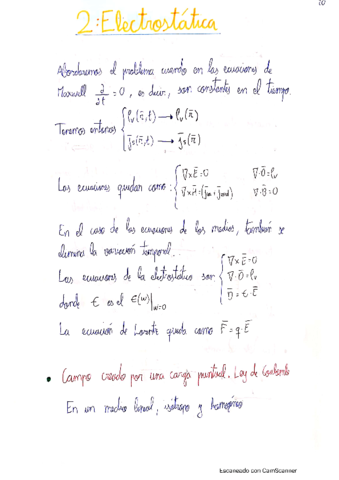 10
2: Electrostática
Abordaremos el problema usando en las ecuaciones de
Maxwell ∂/∂t = 0, es decir, son constantes en el tiempo.
Tenemos entonces { ρᵥ(r̄,t) → ρᵥ(r̄)
j̄s(r̄,t) → j̄s(r̄)
Las ecuaciones quedan como: { ∇×Ē=0 ∇·D̄=ρᵥ
∇×H̄= ∇·B̄=0
En el caso de las ecuaciones de los medios, también se
elimina la variación temporal.
Las ecuaciones de la electrostática son { ∇×Ē=0
∇·D̄=ρᵥ
D̄=ε·Ē
donde ε es el ε(w)|w=0
La ecuación de Lorentz queda como F̄=q·Ē
• Campo creado por una carga puntual. Ley de Coulomb
En un medio lineal, isótropo y homogéneo
Escaneado con CamScanner